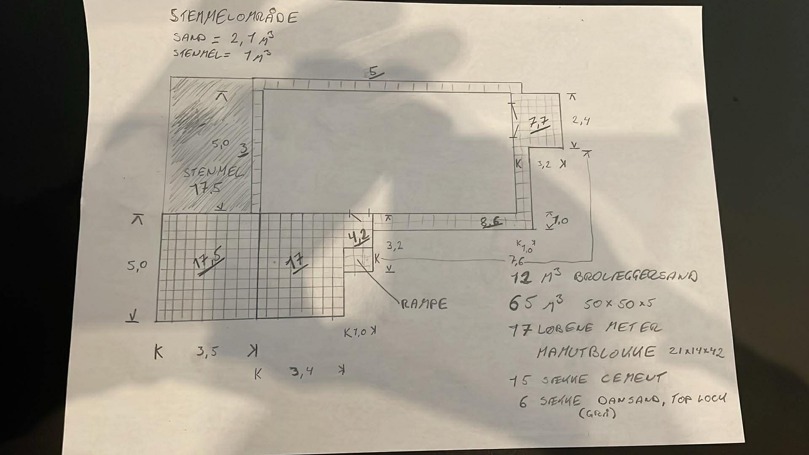 STENMELOMRÅDE
SAND = 2,1 M³
STENMEL = 1 M³
5
7,7
2,4
3,2
5,0
3
STENMEL
17.5
8,6
1,0
1,0
7,6
4,2
3,2
5,0
17,5
17
RAMPE
1,0
3,5
3,4
12 M³ BROLÆGGERSAND
65 M² 50x50x5
17 LØBENE METER
MAMUTBLOKKE 21x14x42
15 SÆKKE CEMENT
6 SÆKKE DANSAND, TOP LOCK
(GRÅ)